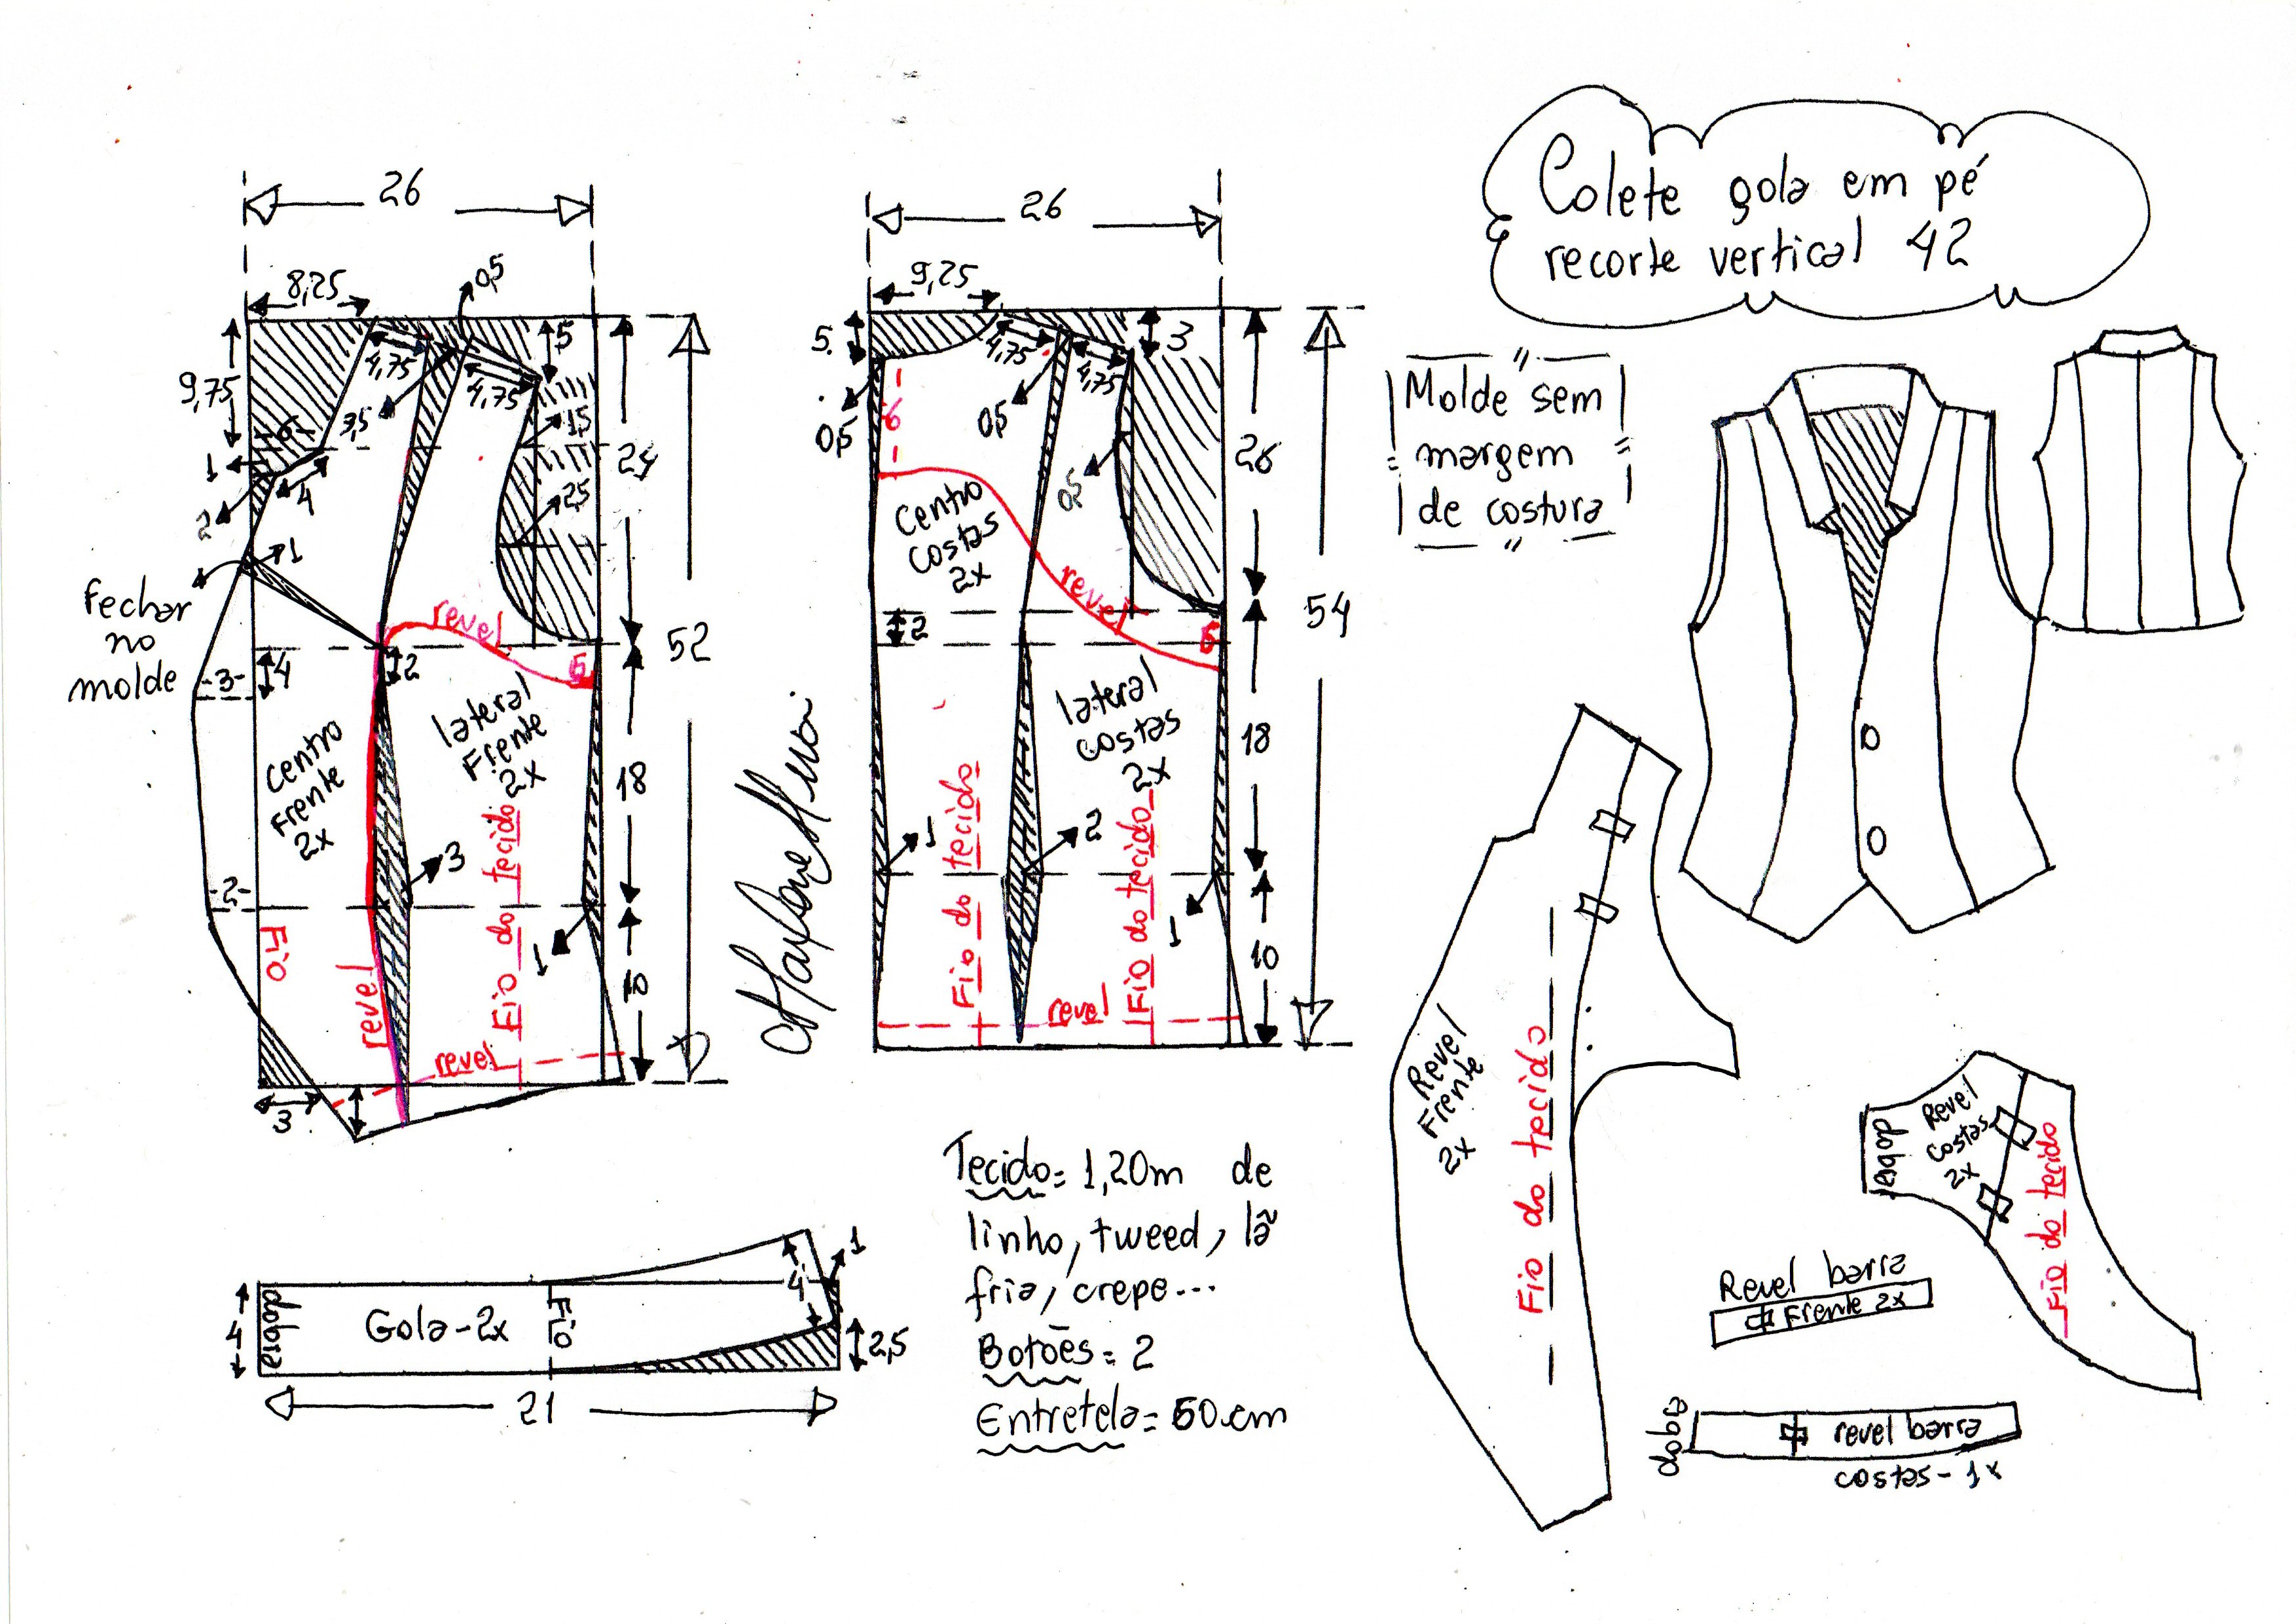 Colete gola em pé
recorte vertical 42
Molde sem
margem
de costura
26
8,25
0,5
9,75
4,75
3,5
4,75
5
1,5
2,5
6
1
4
2
1
24
52
fechar
no
molde
-3-
4
2
revel
5
centro
Frente
2x
lateral
Frente
2x
18
3
-2-
Fio
revel
Fio do tecido
1
10
revel
3
26
9,25
5
3
4,75
4,75
0,5
6
0,5
0,5
26
centro
costas
2x
revel
2
6
54
lateral
costas
2x
18
1
2
Fio do tecido
Fio do tecido
1
10
revel
Tecido= 1,20m de
linho, tweed, lã
fria, crepe...
Botões= 2
Entretela= 50.cm
4
dobra
Gola-2x
Fio
4
1
2,5
21
Revel
Frente
2x
Fio do tecido
dobra
Revel
costas
2x
Fio do tecido
Revel barra
Frente 2x
dobra
revel barra
costas- 1x